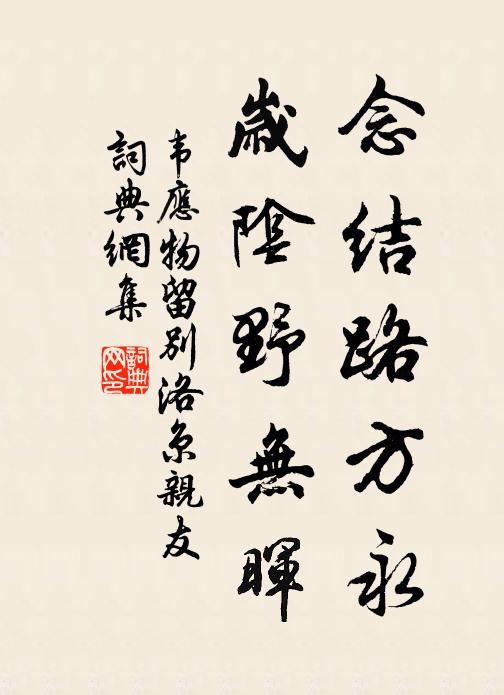 念结路方永
歲陰野無暉
韦應物留别洛京親友
詞典網集
詞典网印